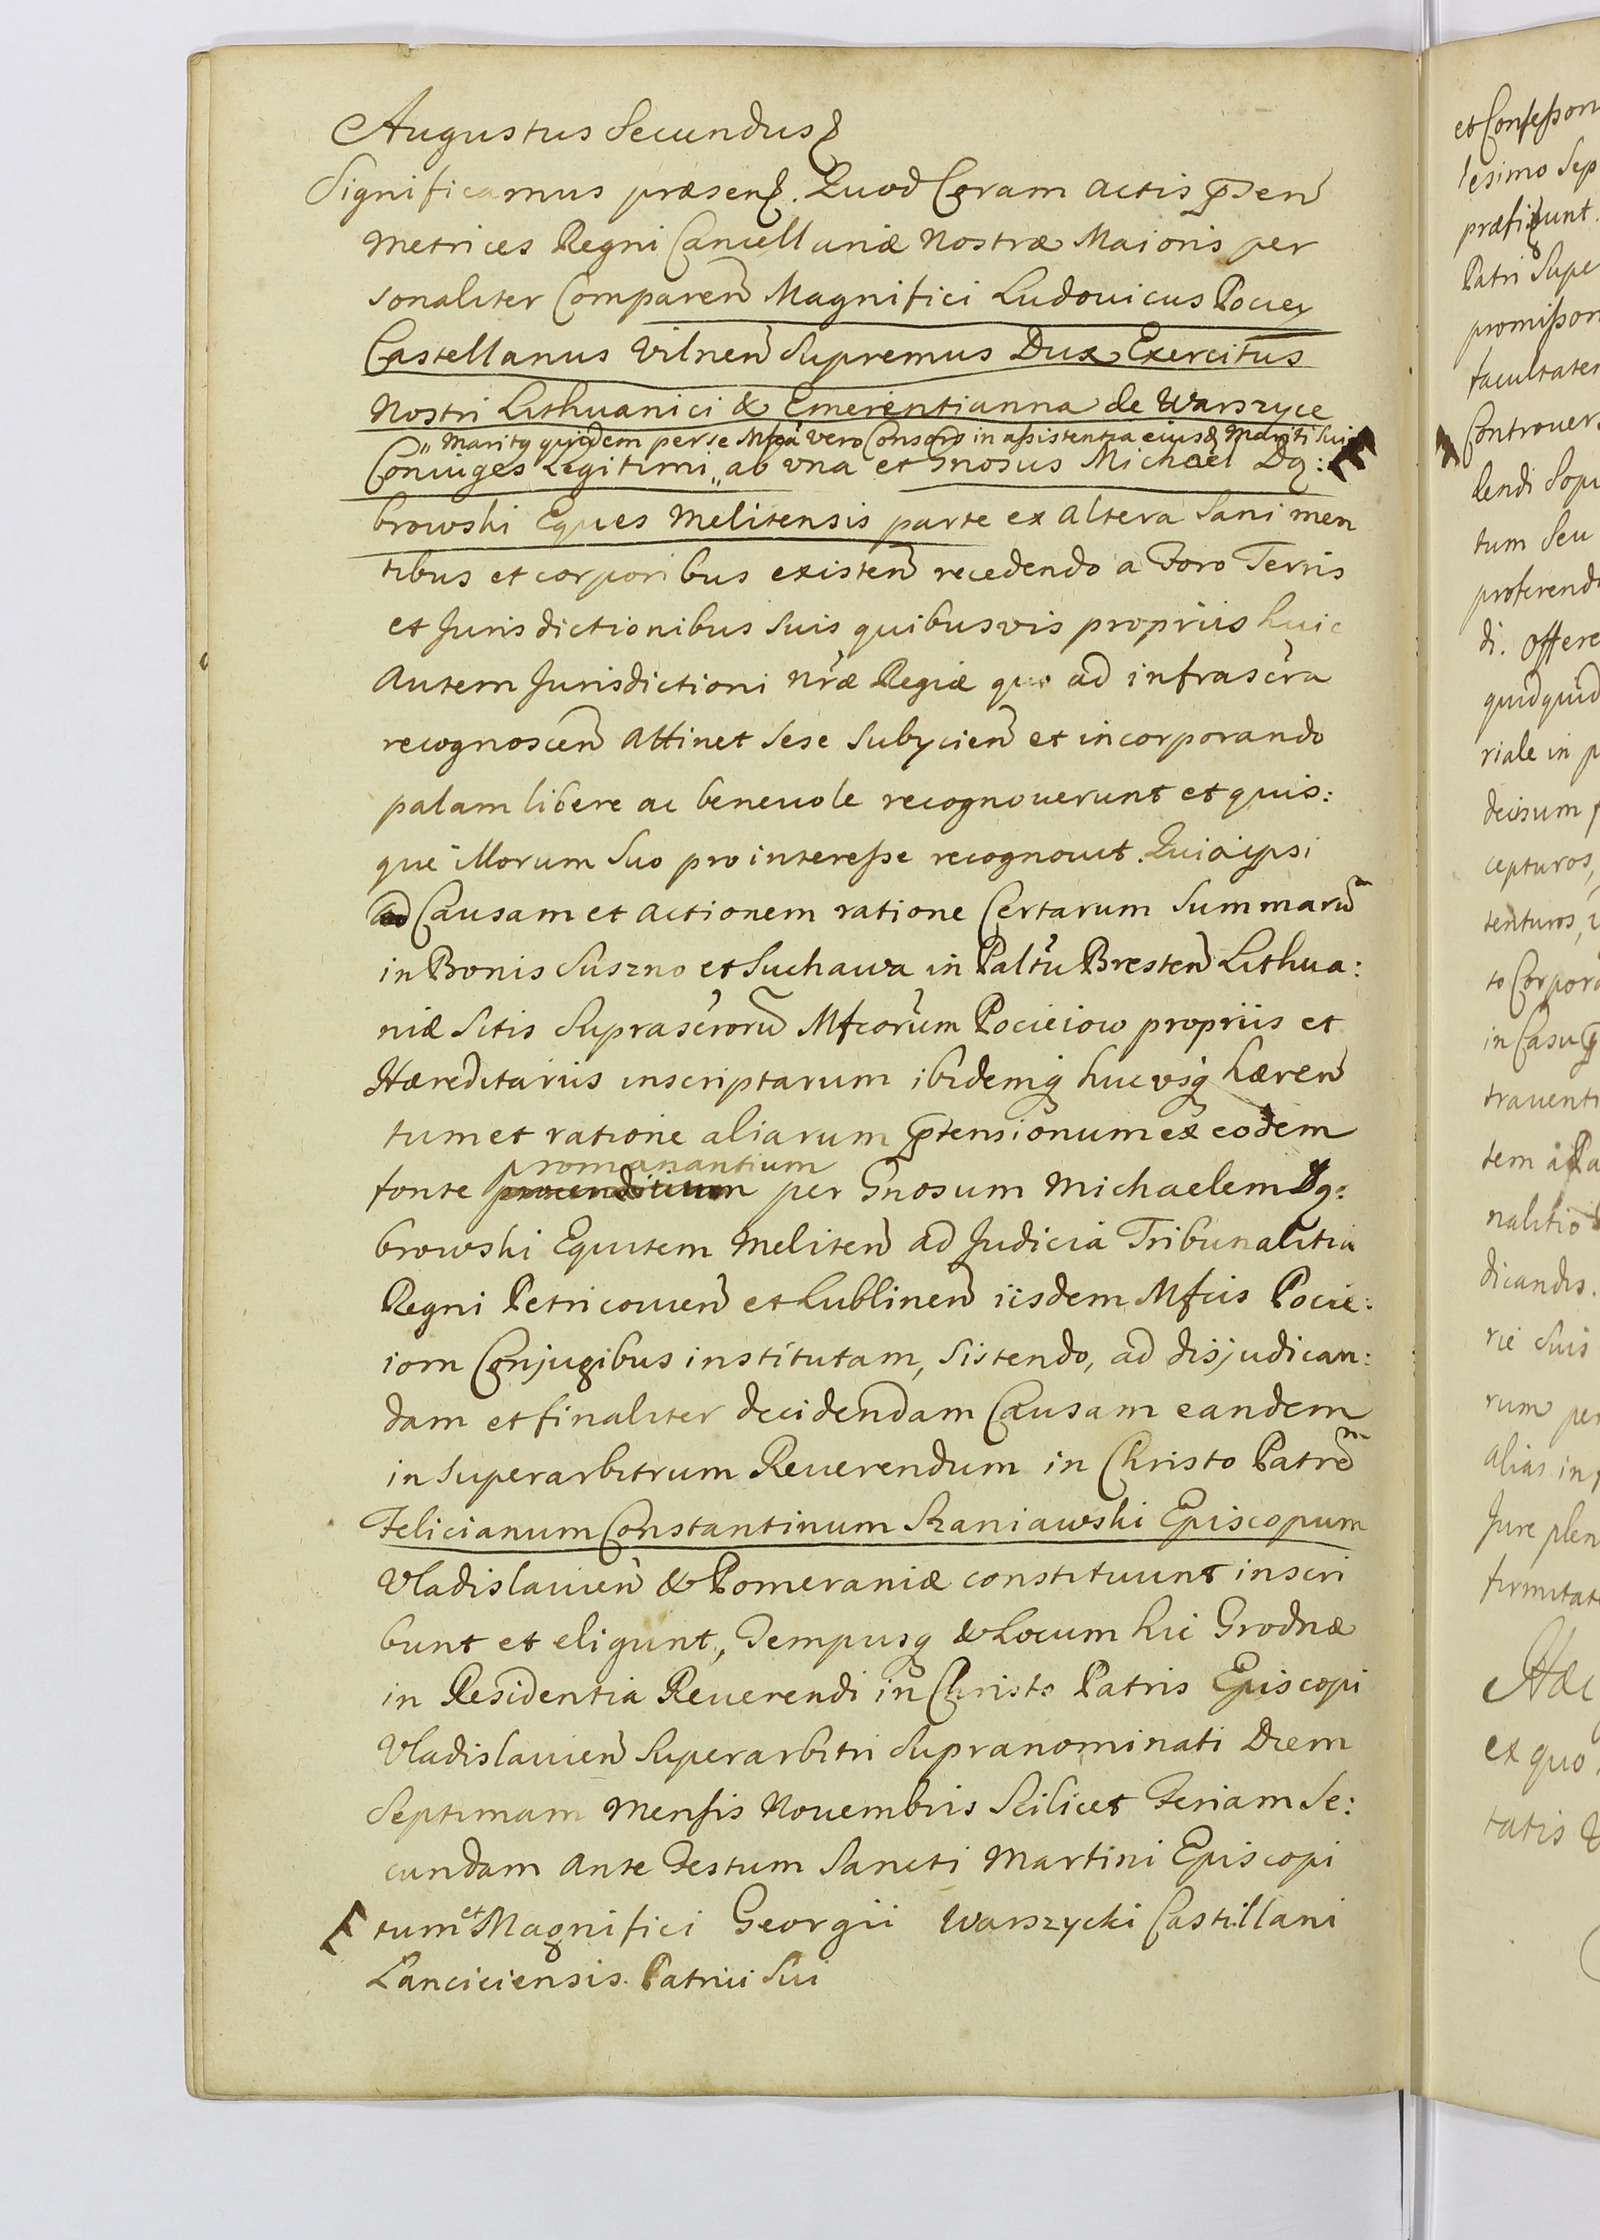 Augustus Secundus
Significamus præsen. Quod Coram Actis p̄sen
Metrices Regni Cancellariæ Nostræ Maioris per
sonaliter Comparen Magnifici Ludovicus Pociey
Castellanus Vilnen Supremus Dux Exercitus
Nostri Lithuanici & Emerentianna de Warszyce
„ Maritq quidem per se Mfca vero Consors in assistentia eiusd Mariti sui
Coniuges Legitimi „ ab una et Gnosus Michael Dą:
browski Eques Melitensis parte ex altera Sani men
tibus et corporibus existen recedendo a Foro Terris
et Jurisdictionibus suis quibusvis propriis huic
Autem Jurisdictioni nræ Regiæ quo ad infrascra
recognoscen Attinet sese subycien et incorporando
palam libere ac beneuole recognouerunt et quis:
que illorum suo pro interesse recognouit. Quia ipsi
ad Causam et actionem ratione Certarum Summarum
in Bonis Suszno et Suchawa in Paltu Bresten Lithua:
niæ Sitis Suprascroru Mfcorum Pocieiow propriis et
Hæreditariis inscriptarum ibidemq hucusq hæren
tum et ratione aliarum p̄tensionum ex eodem
promanantium
fonte per Gnosum Michaelem Dą:
browski Equitem Meliten ad Judicia Tribunalitia
Regni Petricouien et Lublinen iisdem Mfcis Pocie:
iom Conjugibus institutam, sistendo, ad disjudican:
dam et finaliter decidendam Causam eandem
in Superarbitrum Reuerendum in Christo Patrem
Felicianum Constantinum Szaniawski Episcopum
Vladislauien & Pomeraniæ constituunt inscri
bunt et eligunt, Tempusq & Locum hic Grodnæ
in Residentia Reuerendi in Christo Patris Episcopi
Vladislauien Superarbitri Supranominati Diem
Septimam Mensis Nouembris Scilicet Feriam Se:
cundam Ante Festum Sancti Martini Episcopi
tum et Magnifici Georgii Warszycki Castellani
Lanciciensis Patrui Sui
et Confesson
lesimo Sep
præfi unt
Patri Supe
promisson
facultates
Controuer
lendi Sopi
tum Seu
proferend
di. Offere
quidquid
riale in p
decisum
cepturos,
tenturos,
to Corpora
in Casu
trauenti
nalitio
dicandis.
rie suis
rum per
alias in
Jure plen
firmitat
Hæc
ex quo
tatis